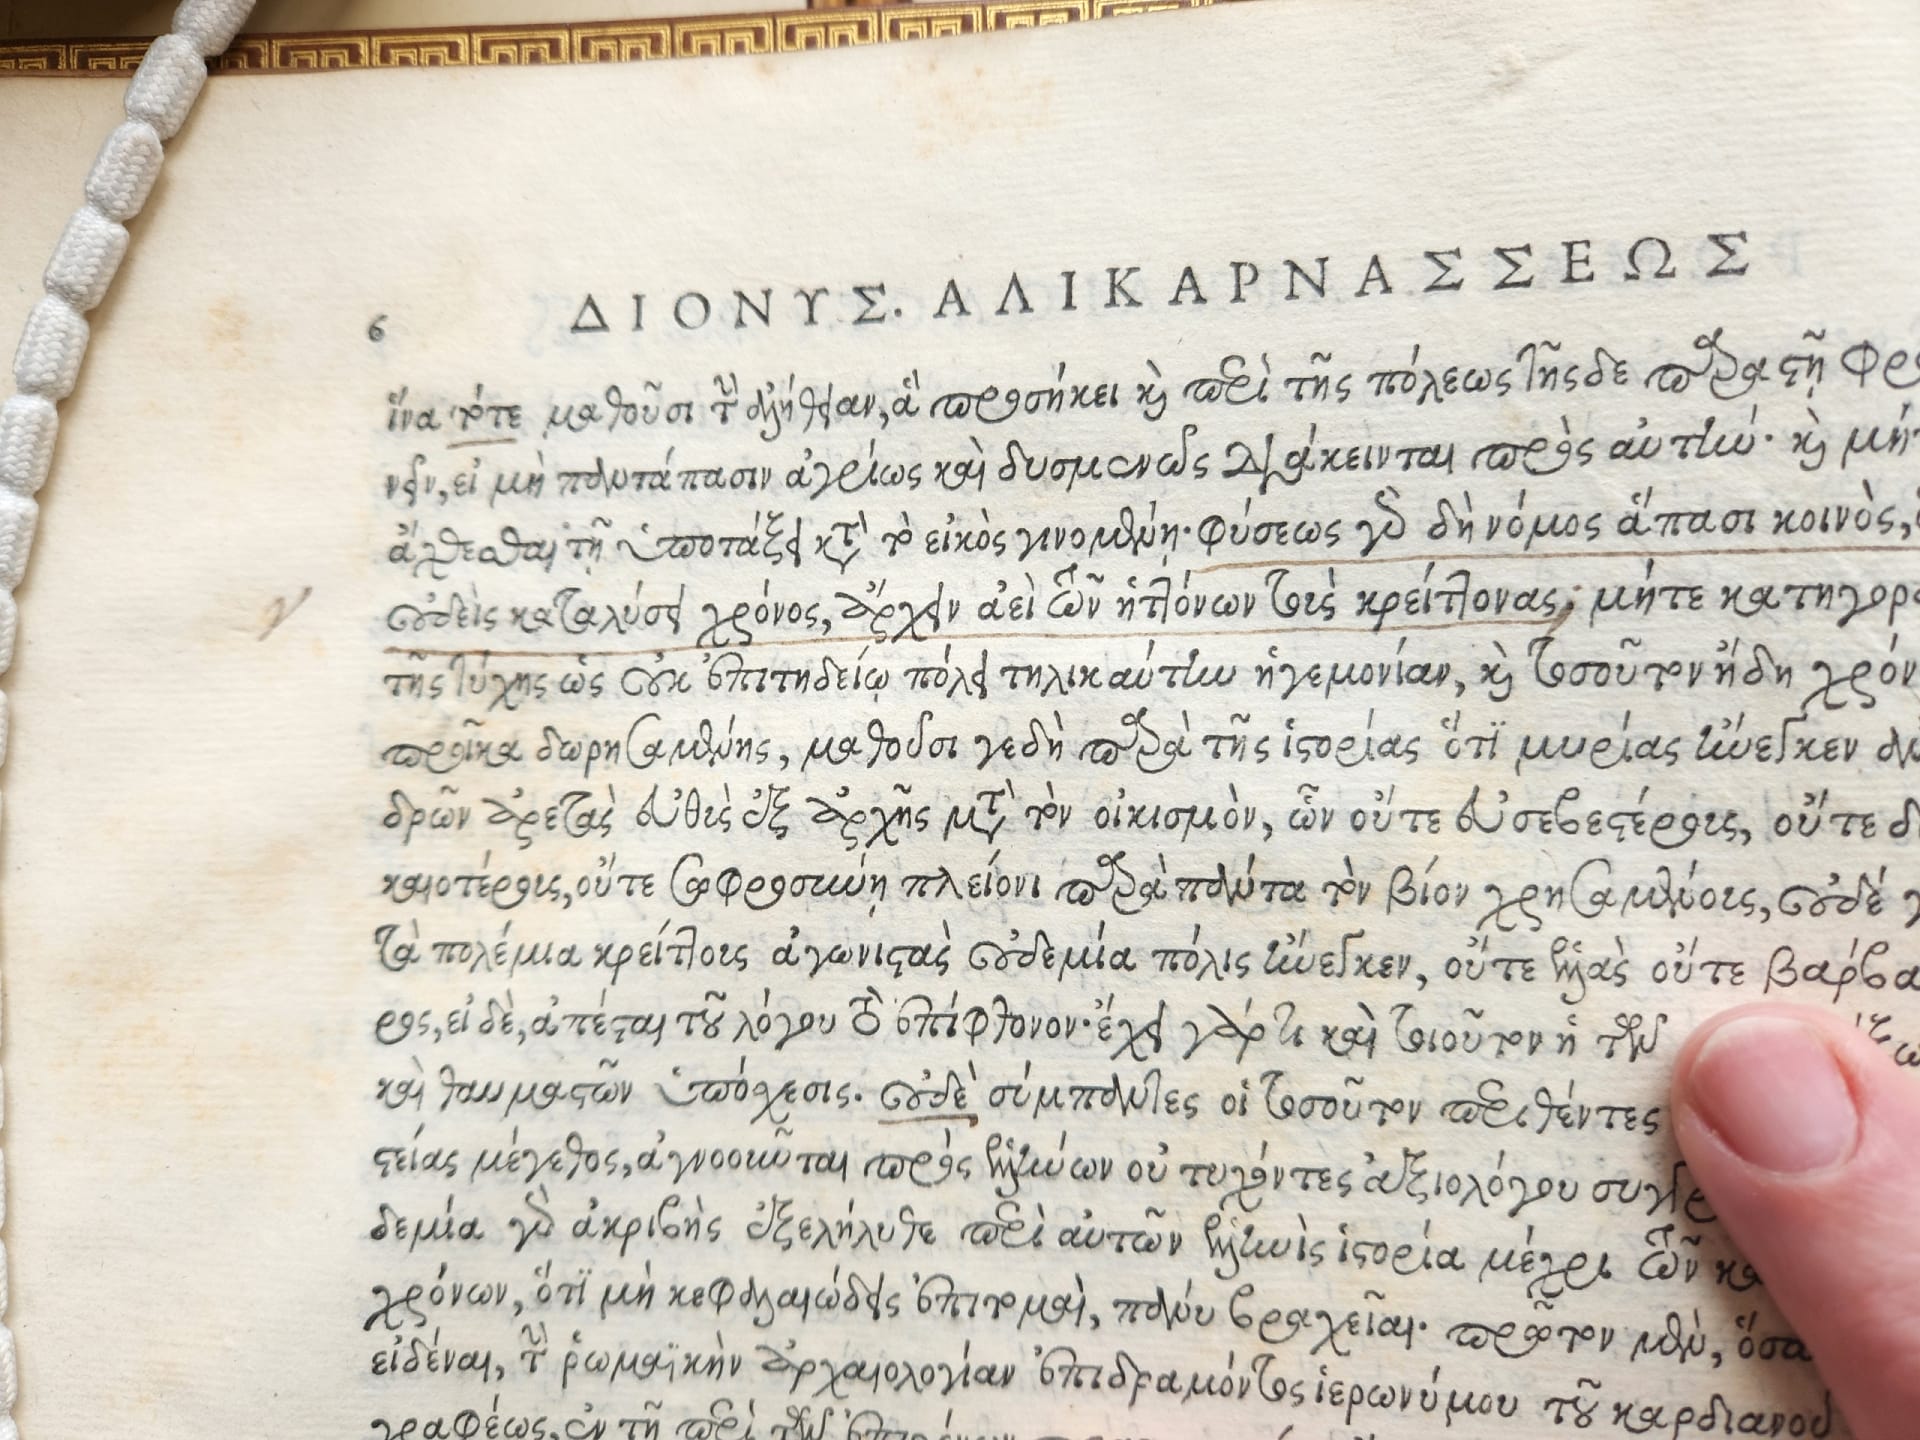 6 ΔΙΟΝΥΣ. ΑΛΙΚΑΡΝΑΣΣΕΩΣ
ἵνα τότε μαθοῦσι τὴν ἀλήθειαν, ἃ προσήκει καὶ περὶ τῆς πόλεως τῆσδε παραστῇ
νειν, εἰ μὴ πολυτάπασιν ἀγρίως καὶ δυσμενῶς διάκεινται πρὸς αὐτήν· καὶ
ἄχθεσθαι τῇ ὑποτάξει κατὰ τὸ εἰκὸς γινομένῃ· φύσεως γὰρ δὴ νόμος ἅπασι κοινὸς,
οὐδεὶς καταλύσει χρόνος, ἄρχειν ἀεὶ τῶν ἡττόνων τοὺς κρείττονας· μήτε
τῆς τύχης ὡς οὐκ ἐπιτηδείῳ πόλει τηλικαύτην ἡγεμονίαν, καὶ τοσοῦτον ἤδη
προῖκα δωρησαμένης, μαθοῦσι γεδὴ παρὰ τῆς ἱστορίας ὅτι μυρίας ἤνεγκεν
δρῶν ἀρετὰς εὐθὺς ἐξ ἀρχῆς μετὰ τὸν οἰκισμὸν, ὧν οὔτε εὐσεβεστέρους, οὔτε
καιοτέρους, οὔτε σωφροσύνῃ πλείονι παρὰ πάντα τὸν βίον χρησαμένους, οὐδέ
τὰ πολέμια κρείττους ἀγωνιστὰς οὐδεμία πόλις ἤνεγκεν, οὔτε ἑλλὰς οὔτε βάρβα
ρος, εἰ δὲ, ἀπέσται τοῦ λόγου τὸ ἐπίφθονον· ἔχει γάρ τι καὶ τοιοῦτον ἡ τῶν
καὶ θαυμαστῶν ὑπόσχεσις. οὐδὲ σύμπαντες οἱ τοσοῦτον περιθέντες
στείας μέγεθος, ἀγνοοῦνται πρὸς ἑλλήνων οὐ τυχόντες ἀξιολόγου
δεμία γὰρ ἀκριβὴς ἐξελήλυθε περὶ αὐτῶν ἑλληνὶς ἱστορία μέχρι τῶν
χρόνων, ὅτι μὴ κεφαλαιώδεις ἐπιτομαὶ, πάνυ βραχεῖαι· πρῶτον μὲν, ὅσα
εἰδέναι, τὴν ῥωμαϊκὴν ἀρχαιολογίαν ἐπιδραμόντος ἱερωνύμου τοῦ καρδιανοῦ
γραφέως, ἐν τῇ περὶ τῶν